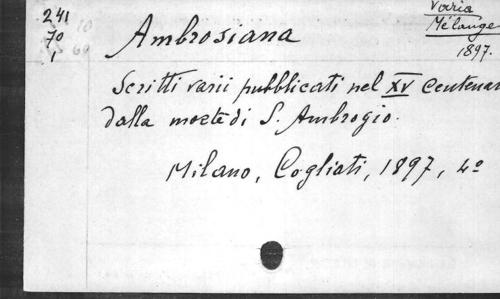 241
70
1
10
60
Varia
Mélange
1897.
Ambrosiana
Scritti varii pubblicati nel XV Centenar
dalla morte di S. Ambrogio.
Milano, Cogliati, 1897, 4º